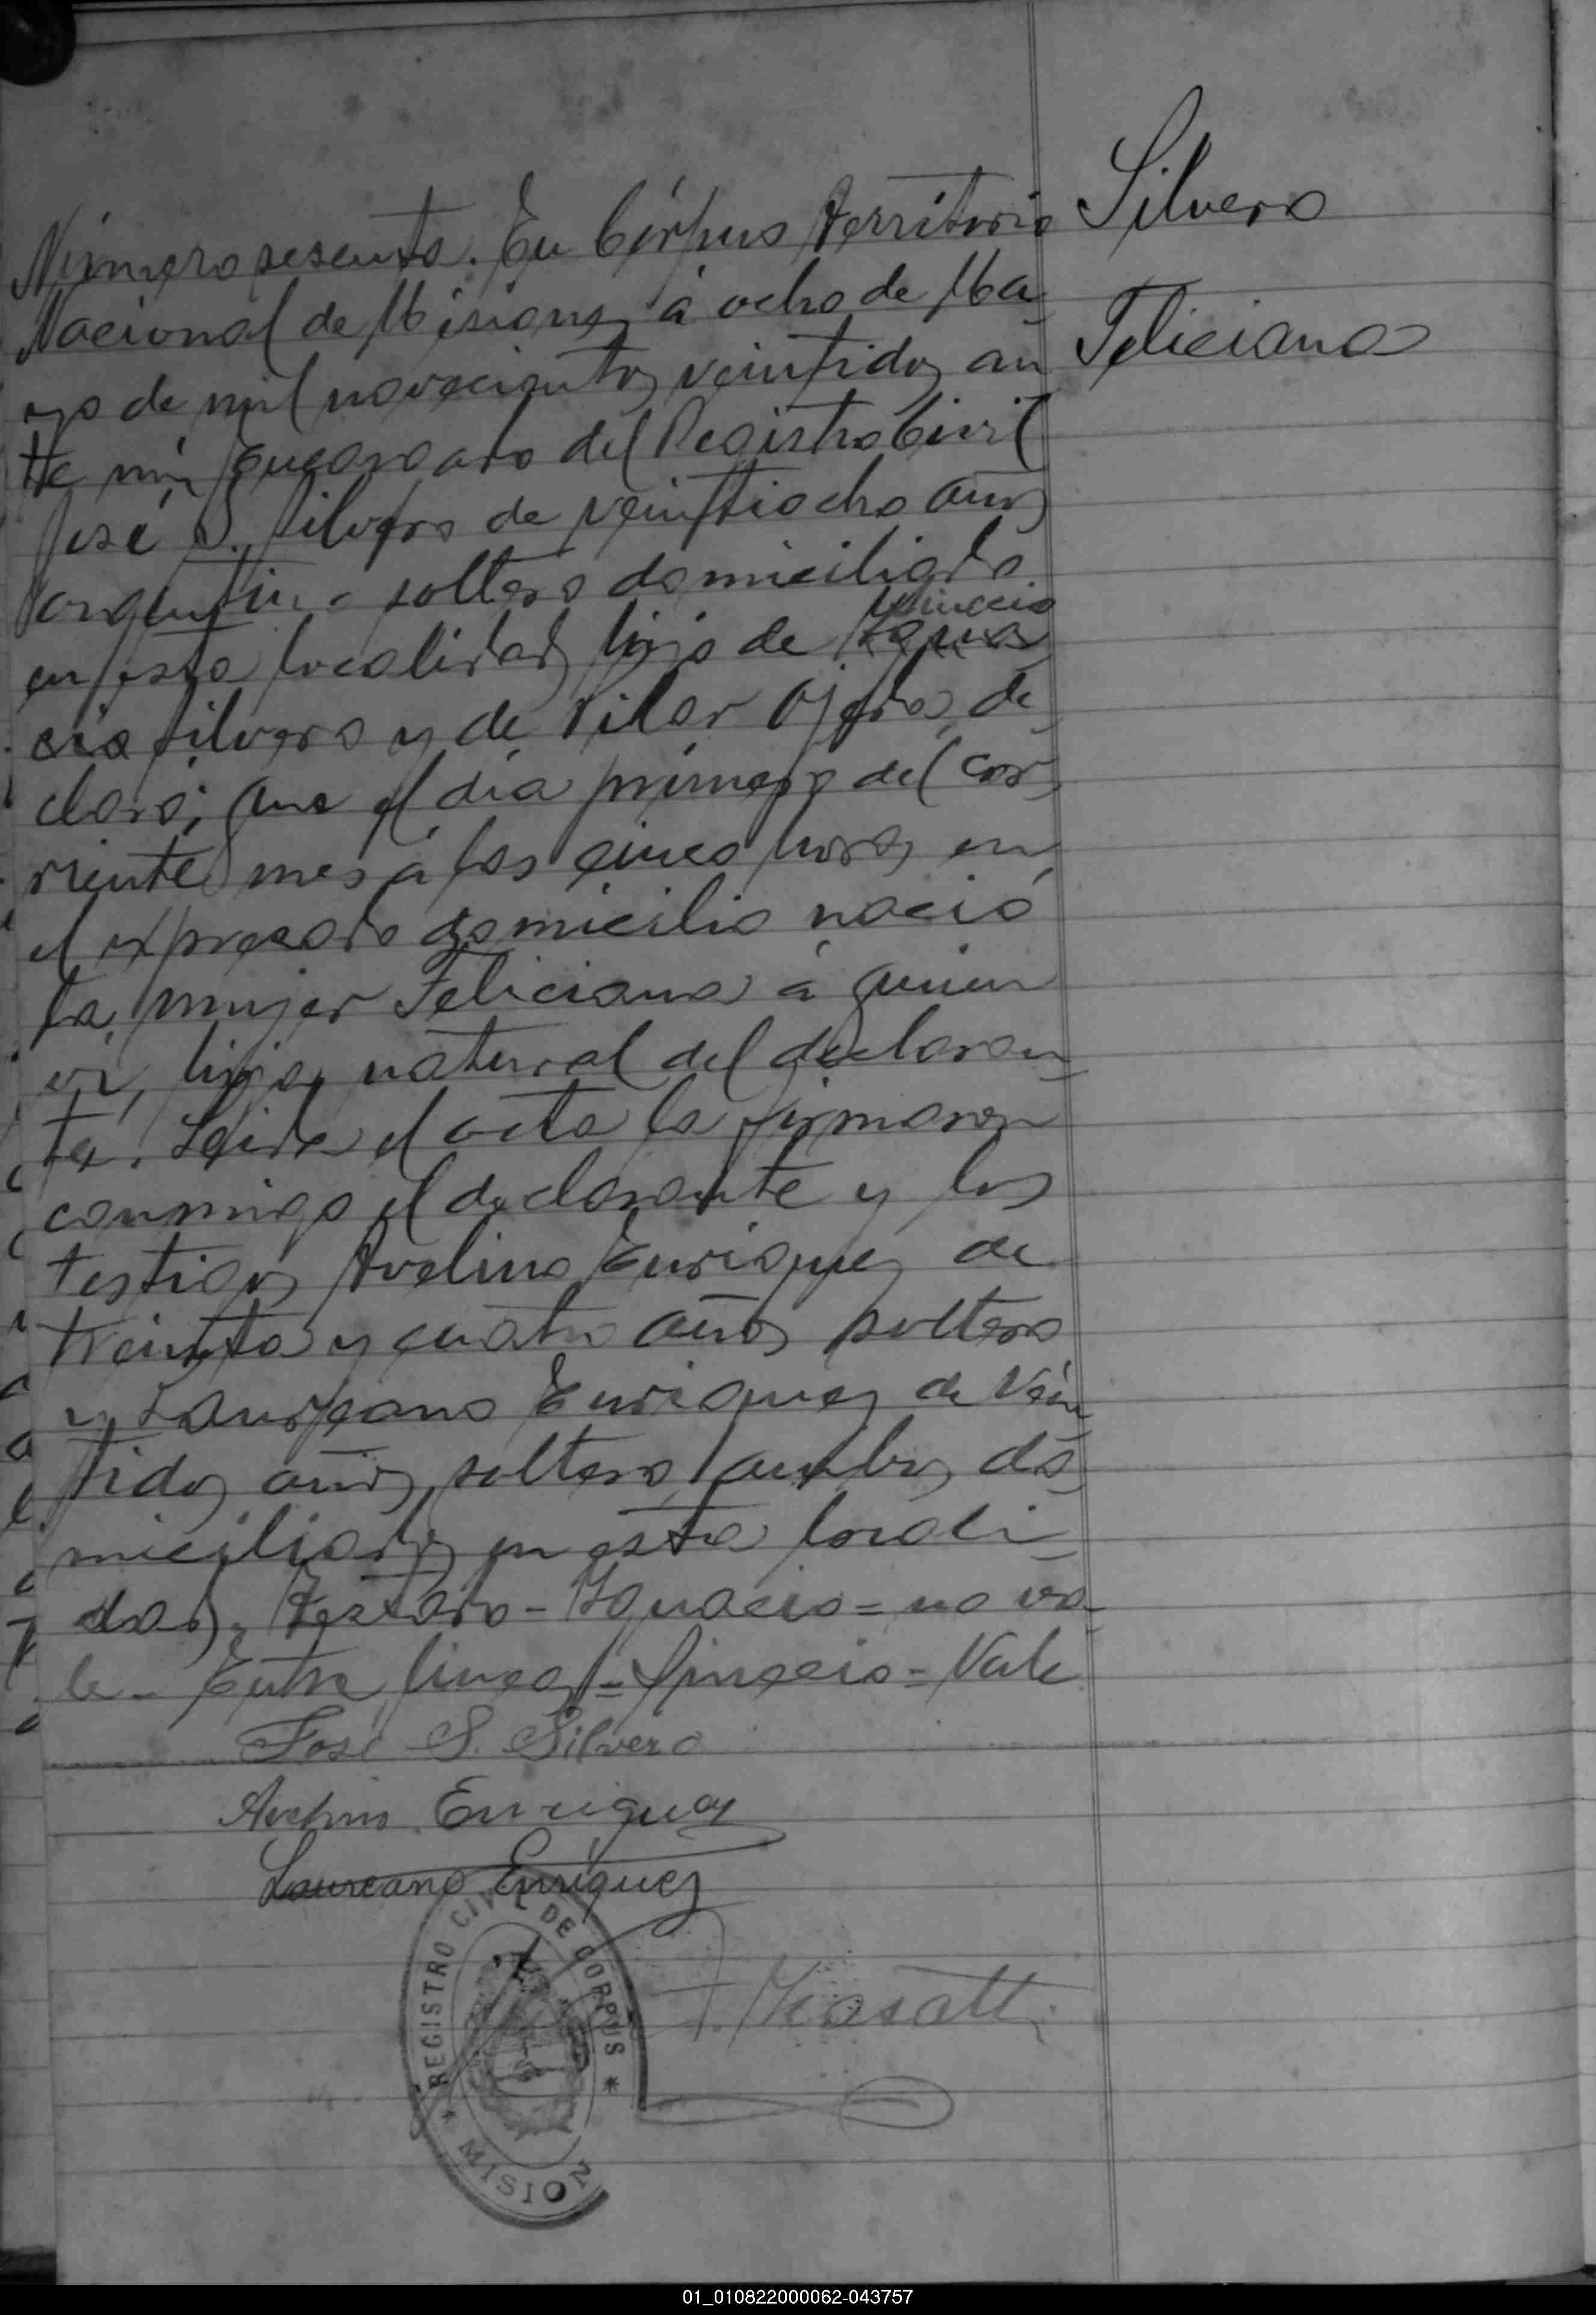 Silvero
Feliciana
Número sesenta. En Córpus Territorio
Nacional de Misiones, á ocho de Ma
yo de mil novecientos veintidos, an
te mí, Encargado del Registro Civil
José S. Silvero de veintiocho años
argentino soltero domiciliado
en esta localidad, hijo de Igna
cio Silvero y de Pilar Ojeda, de
claró; Que el día primero del cor
riente mes á las cinco horas, en
el expresado domicilio nació
la mujer Feliciana á quien
hija natural del declaran
te. Leida el acta la firmaron
conmigo el declarante y los
testigos Avelino Enriquez de
treinta y cuatro años soltero
y Laureano Enriquez de Vein
tidos años, soltero, ambos do
miciliados en esta locali
dad. Testado - Ignacio = no va
le - Entre lineas = = Vale
José S. Silvero
Avelino Enriquez
Laureano Enriquez
REGISTRO CIVIL DE CORPUS
* MISION *
01_010822000062-043757